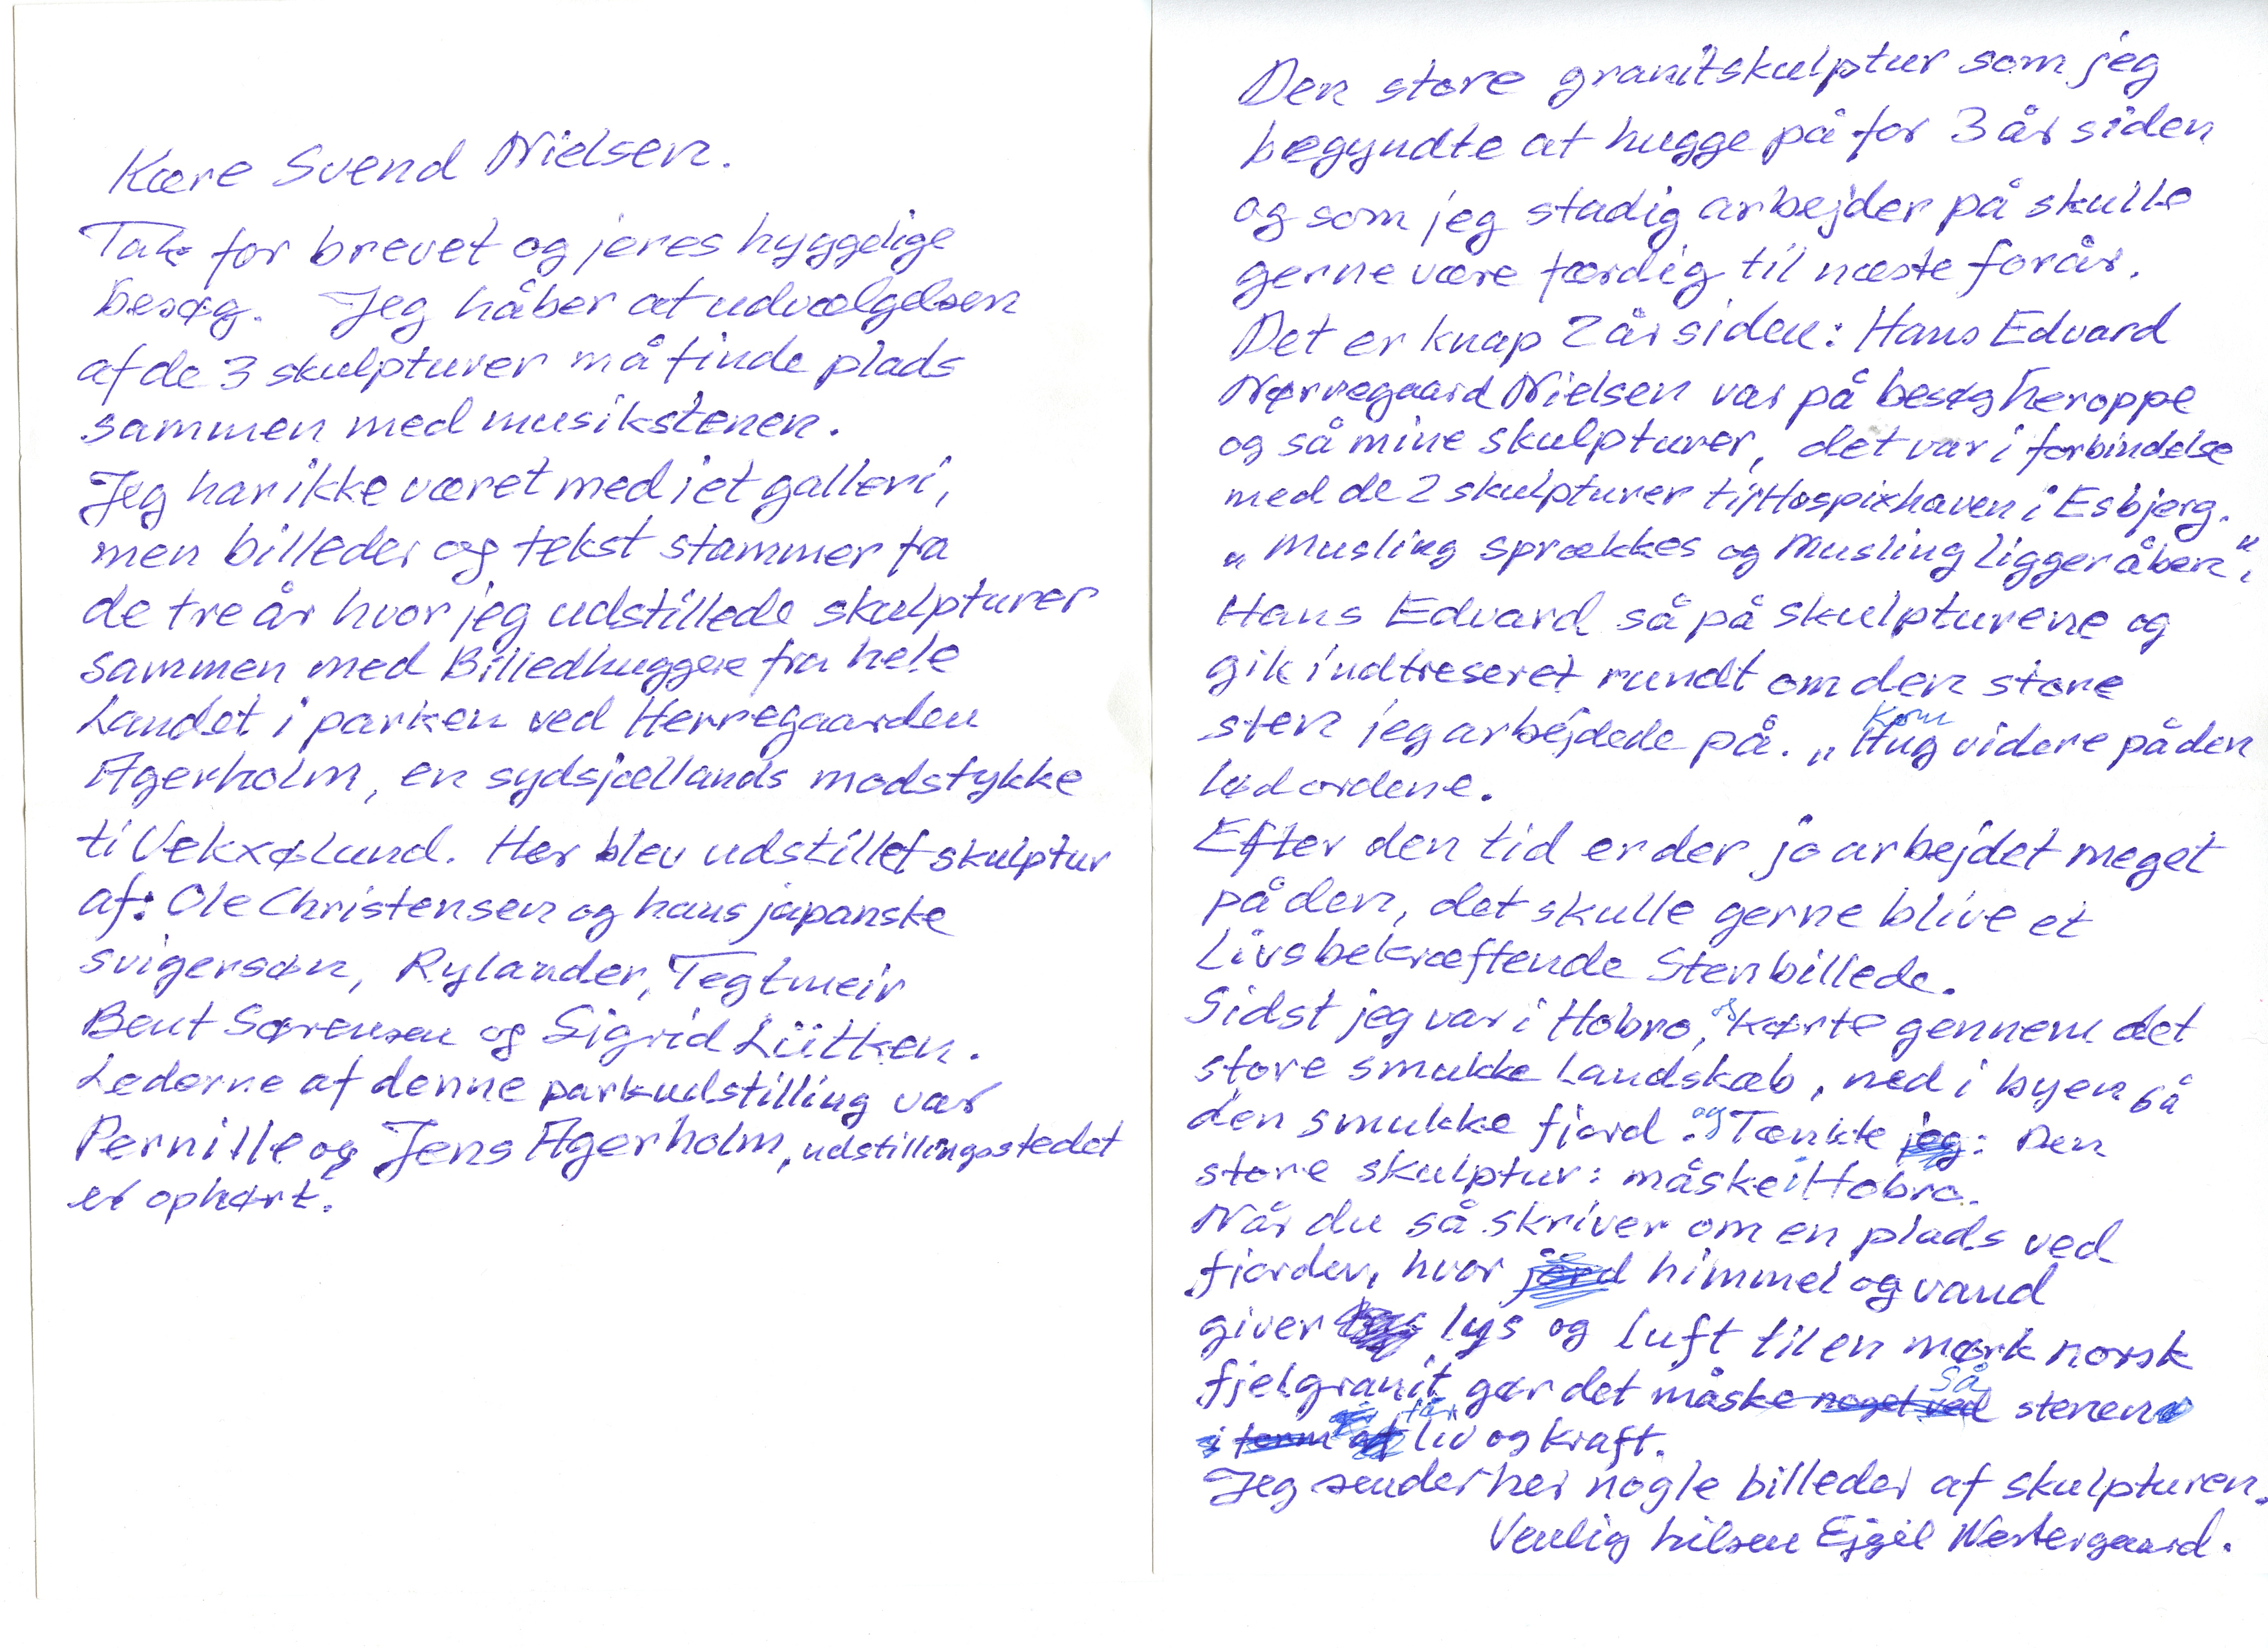 Kære Svend Nielsen.
Tak for brevet og jeres hyggelige
besøg. Jeg håber at udvælgelsen
af de 3 skulpturer må finde plads
sammen med musikstenen.
Jeg har ikke været med i et galleri,
men billeder og tekst stammer fra
de tre år hvor jeg udstillede skulpturer
sammen med Billedhuggere fra hele
Landet i parken ved Herregaarden
Agerholm, en sydsjællands modstykke
til Vekxølund. Her blev udstillet skulptur
af: Ole Christensen og hans japanske
svigersøn, Rylander, Tegtmeir
Bent Sørensen og Sigrid Lütken.
Lederne af denne parkudstilling var
Pernille og Jens Agerholm, udstillingsstedet
er ophørt.
Den store granitskulptur som jeg
begyndte at hugge på for 3 år siden
og som jeg stadig arbejder på skulle
gerne være færdig til næste forår.
Det er knap 2 år siden: Hans Edvard
Nørregaard Nielsen var på besøg heroppe
og så mine skulpturer, det var i forbindelse
med de 2 skulpturer til Hospixhaven i Esbjerg.
„Musling sprækkes og Musling ligger åben".
Hans Edvard så på skulpturene og
gik indtreseret rundt om den store
sten jeg arbejdede på. „Kom Hug videre på den
lød ordene.
Efter den tid er der jo arbejdet meget
på den, det skulle gerne blive et
Livsbekræftende Stenbillede.
Sidst jeg var i Hobro, og kørte gennem det
store smukke Landskab, ned i byen så
den smukke fjord. og Tænkte jeg: Den
store skulptur: måske i Hobro.
Når du så skriver om en plads ved
fjorden, hvor jord himmel og vand
giver lys og luft til en mørk norsk
fjelgranit gør det måske noget ved så stenen
i form af får liv og kraft.
Jeg sender her nogle billeder af skulpturen.
Venlig hilsen Ejgil Westergaard.